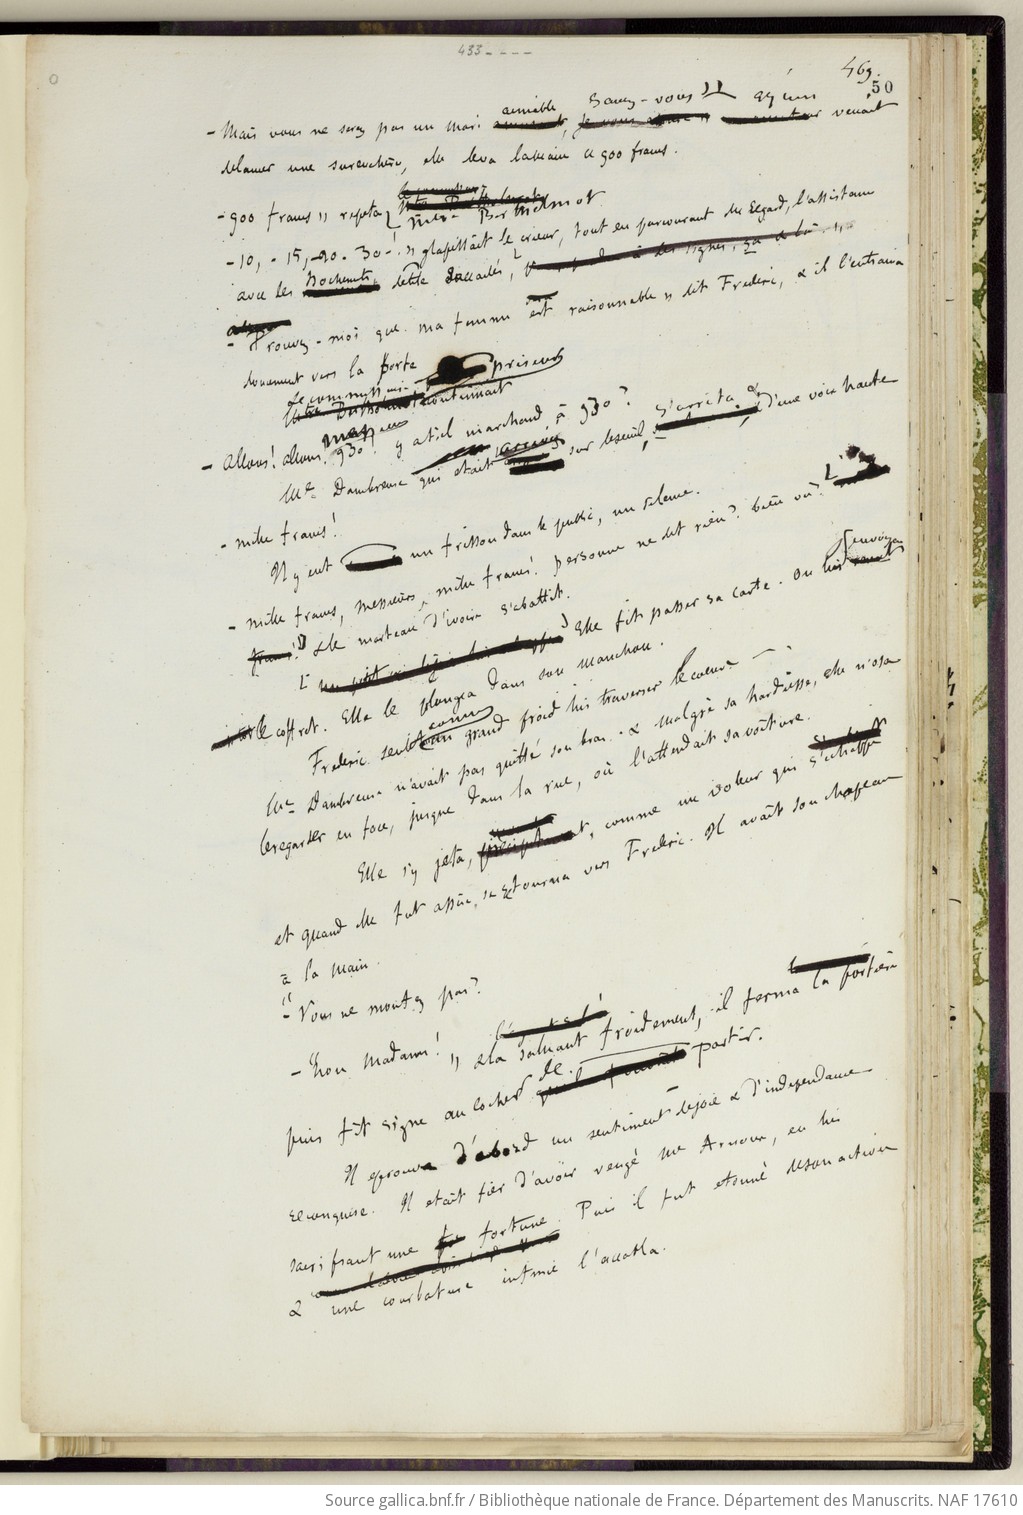 433_ _ _ _
469.
50
aimable Savez-vous "
– Mais vous ne serez pas un mari venait
de lancer une surenchère, elle leva la main & 900 francs.
– 900 francs » répéta
Me Berthelmot
– 10, – 15, – 20 – 30 – ! » glapissait le crieur, tout en parcourant du regard, l'assistance
avec des hochements de tête saccadés,
– Prouvez-moi que ma femme est raisonnable » dit Frederic, & il l'entraina
doucement vers la porte
Le commissaire priseur continuait
– Allons! allons, messieurs 930! y a t'il marchand, à 930?
Me Dambreuse qui etait arrivée sur le seuil, s'arrêta. & d'une voix haute
– mille francs!
Il y eut un frisson dans le public, un silence.
– mille francs, messieurs, mille francs! personne ne dit rien? bien vu?
francs! » & le marteau d'ivoire s'abattit.
Elle fit passer sa carte. on lui envoya
le coffret. Elle le plongea dans son manchon.
Frederic sentit comme un grand froid lui traverser le coeur.
Me Dambreuse n'avait pas quitté son bras. & malgré sa hardiesse, elle n'osa
le regarder en face, jusque dans la rue, où l'attendait sa voiture.
Elle s'y jeta, comme un voleur qui s'échappe
et quand elle fut assise, se retourna vers Frederic. Il avait son chapeau
à la main.
– Vous ne montez pas?
– Non madame! » & la saluant froidement, il ferma la portière
puis fit signe au cocher de partir.
Il eprouva d'abord un sentiment de joie & d'independance
reconquise. Il etait fier d'avoir vengé me Arnoux, en lui
sacrifiant une fortune. Puis il fut etonné de son action
& une courbature infinie l'accabla.
Source gallica.bnf.fr / Bibliothèque nationale de France. Département des Manuscrits. NAF 17610